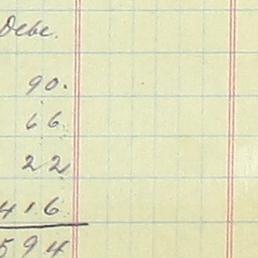 Debe.
90.
66
22
416
594